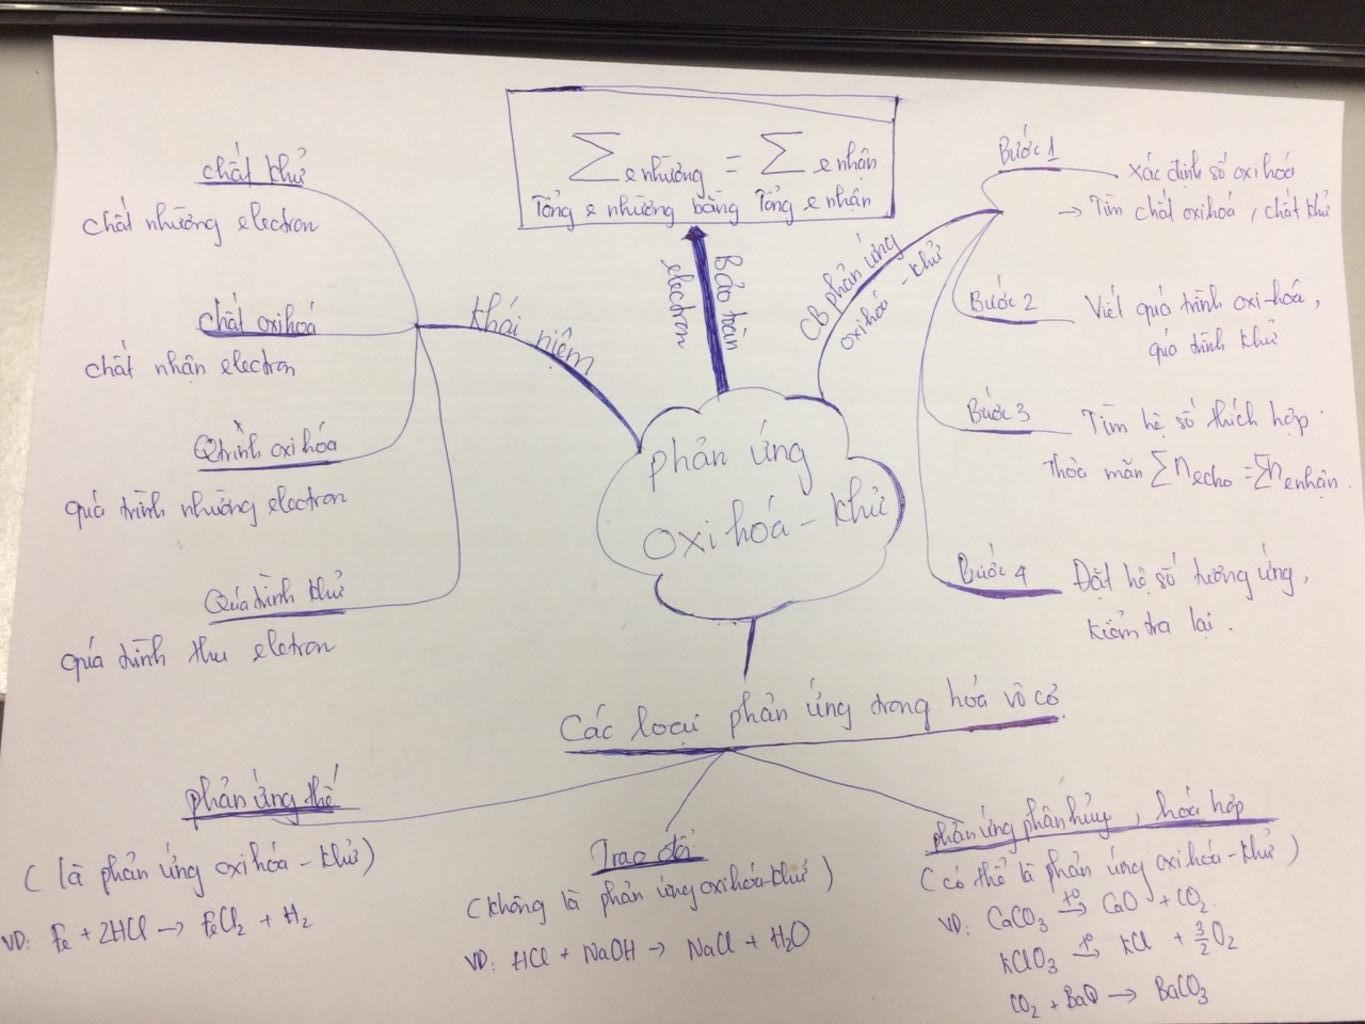 Σ e nhường = Σ e nhận
Tổng e nhường bằng Tổng e nhận
Bảo toàn
electron
phản ứng
oxi hoá - khử
Khái niệm
chất khử
chất nhường electron
chất oxi hoá
chất nhận electron
Qtrình oxi hóa
quá trình nhường electron
Quá trình khử
quá trình thu eletron
CB phản ứng
oxi hoá - khử
Bước 1
xác định số oxi hoá
→ Tìm chất oxi hoá, chất khử
Bước 2
Viết quá trình oxi-hoá,
quá trình khử
Bước 3
Tìm hệ số thích hợp
thỏa mãn Σn e cho = Σn e nhận.
Bước 4
Đặt hệ số tương ứng,
kiểm tra lại.
Các loại phản ứng trong hoá vô cơ.
phản ứng thế
(là phản ứng oxi hoá - khử)
VD: Fe + 2HCl → FeCl2 + H2
Trao đổi
(Không là phản ứng oxi hoá-khử)
VD: HCl + NaOH → NaCl + H2O
phản ứng phân hủy, hoá hợp
(có thể là phản ứng oxi hoá-khử)
VD: CaCO3 t°→ CaO + CO2
KClO3 t°→ KCl + 3/2 O2
CO2 + BaO → BaCO3